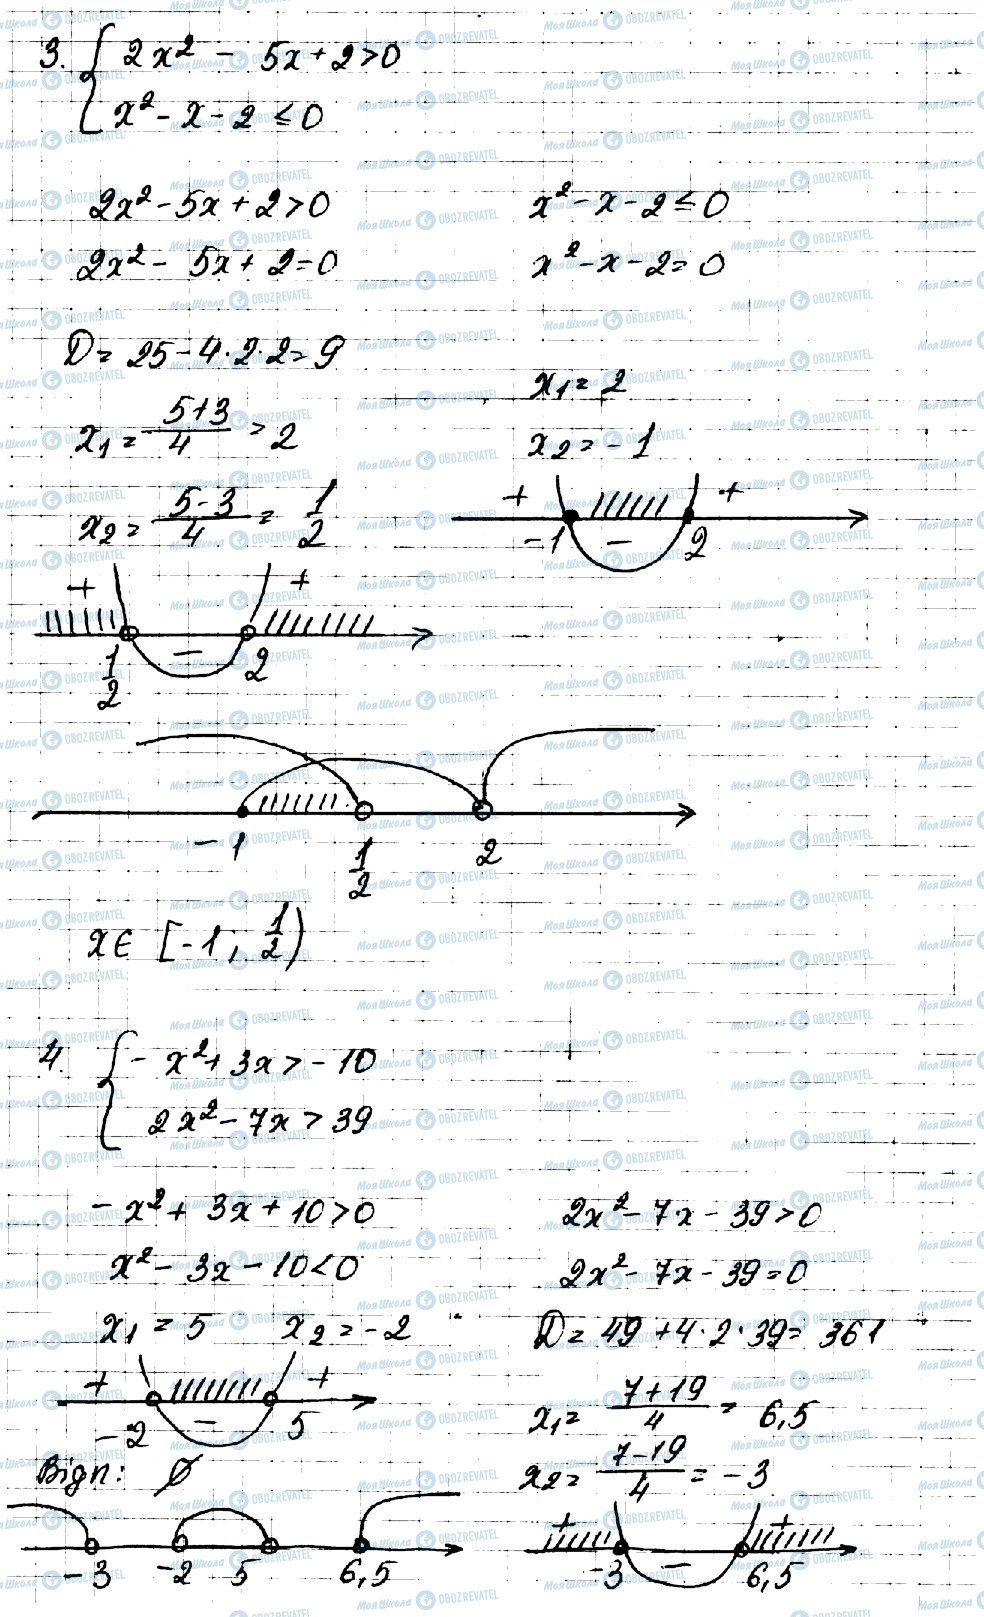 3. { 2x² - 5x + 2 > 0
x² - x - 2 ≤ 0
2x² - 5x + 2 > 0
2x² - 5x + 2 = 0
D = 25 - 4·2·2 = 9
x₁ = (5+3)/4 = 2
x₂ = (5-3)/4 = 1/2
x² - x - 2 ≤ 0
x² - x - 2 = 0
x₁ = 2
x₂ = -1
+ +
-1 - 2
+ +
1/2 - 2
-1 1/2 2
x ∈ [-1; 1/2)
4. { -x² + 3x > -10
2x² - 7x > 39
-x² + 3x + 10 > 0
x² - 3x - 10 < 0
x₁ = 5 x₂ = -2
+ +
-2 - 5
Відп: ∅
-3 -2 5 6,5
2x² - 7x - 39 > 0
2x² - 7x - 39 = 0
D = 49 + 4·2·39 = 361
x₁ = (7+19)/4 = 6,5
x₂ = (7-19)/4 = -3
+ +
-3 - 6,5
МояШкола OBOZREVATEL